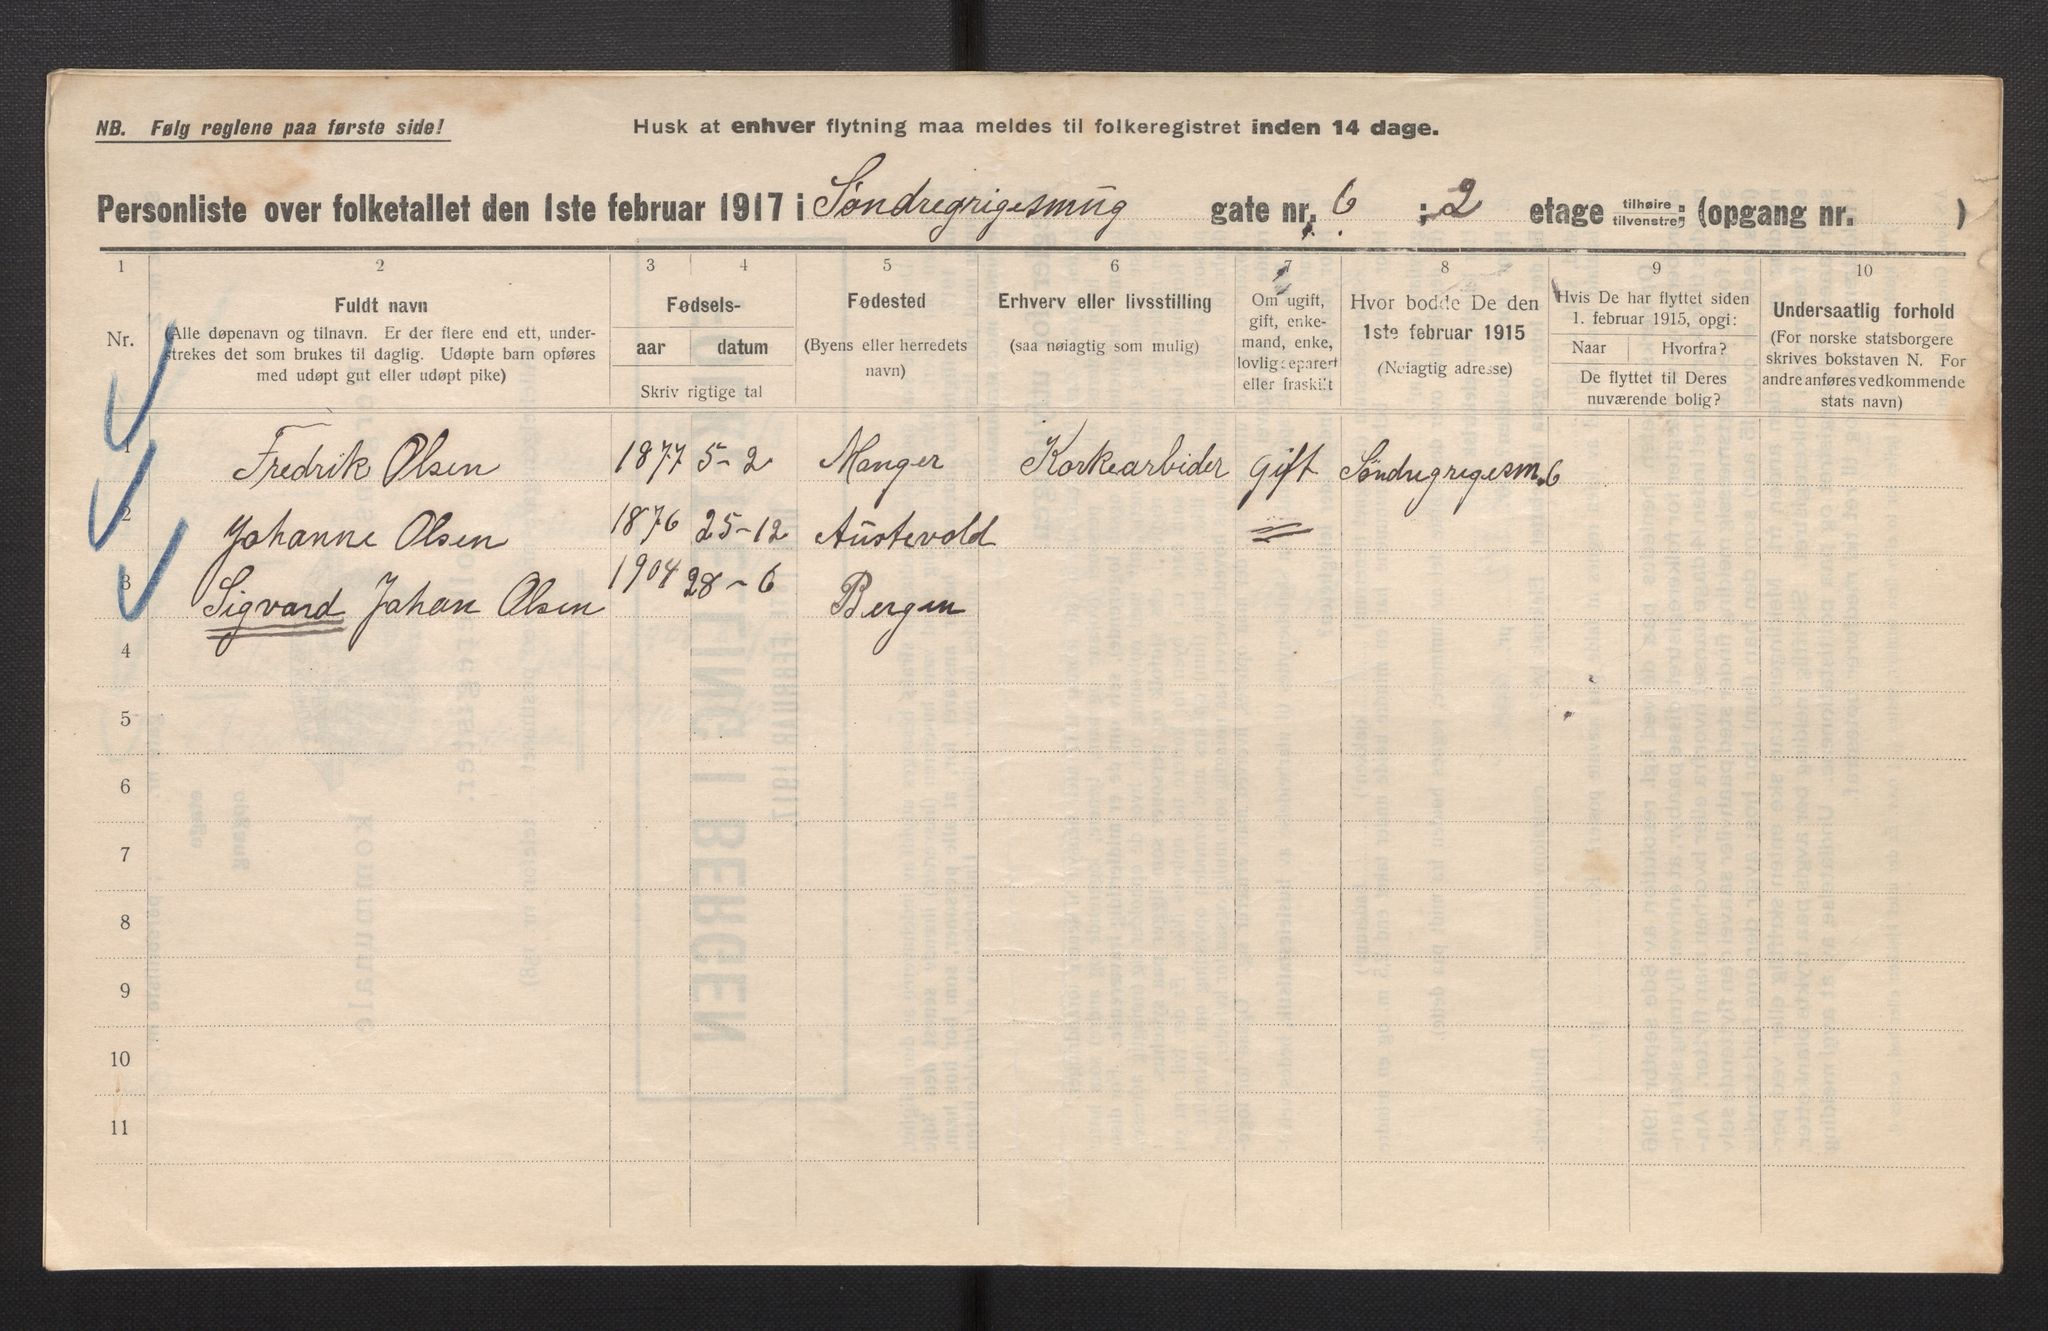 NB. Følg reglene paa første side!
Husk at enhver flytning maa meldes til folkeregistret inden 14 dage.
Personliste over folketallet den 1ste februar 1917 i Søndregrigesmug gate nr. 6 : 2 etage tilhøire tilvenstre; (opgang nr. )
1 2 3 4 5 6 7 8 9 10
Nr.
Fuldt navn
(Alle døpenavn og tilnavn. Er der flere end ett, under-
strekes det som brukes til daglig. Udøpte barn opføres
med udøpt gut eller udøpt pike)
Fødsels-
aar datum
Skriv rigtige tal
Fødested
(Byens eller herredets
navn)
Erhverv eller livsstilling
(saa nøiagtig som mulig)
Om ugift,
gift, enke-
mand, enke,
lovlig separert
eller fraskilt
Hvor bodde De den
1ste februar 1915
(Nøiagtig adresse)
Hvis De har flyttet siden
1. februar 1915, opgi:
Naar Hvorfra?
De flyttet til Deres
nuværende bolig?
Undersaatlig forhold
(For norske statsborgere
skrives bokstaven N. For
andre anføres vedkommende
stats navn)
1 Fredrik Olsen 1877 5-2 Manger Korkearbider Gift Søndregrigesm. 6
2 Johanne Olsen 1876 25-12 Austevold
3 Sigvard Johan Olsen 1904 28-6 Bergen
4
5
6
7
8
9
10
11